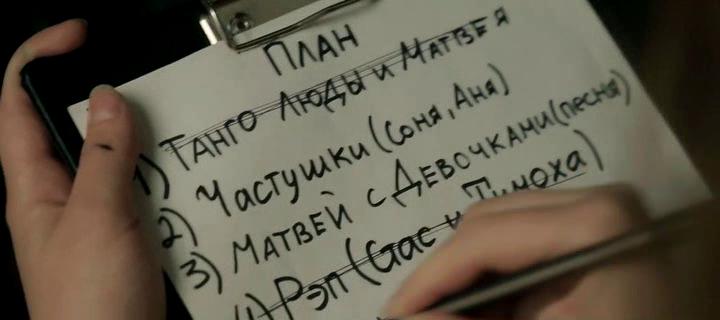 ПЛАН
1) ТАНГО ЛЮДЫ И МАТВЕЯ
2) ЧАСТУШКИ (СОНЯ, АНЯ)
3) МАТВЕЙ С ДЕВОЧКАМИ (ПЕСНЯ)
4) РЭП (СТАС И ТИМОХА)